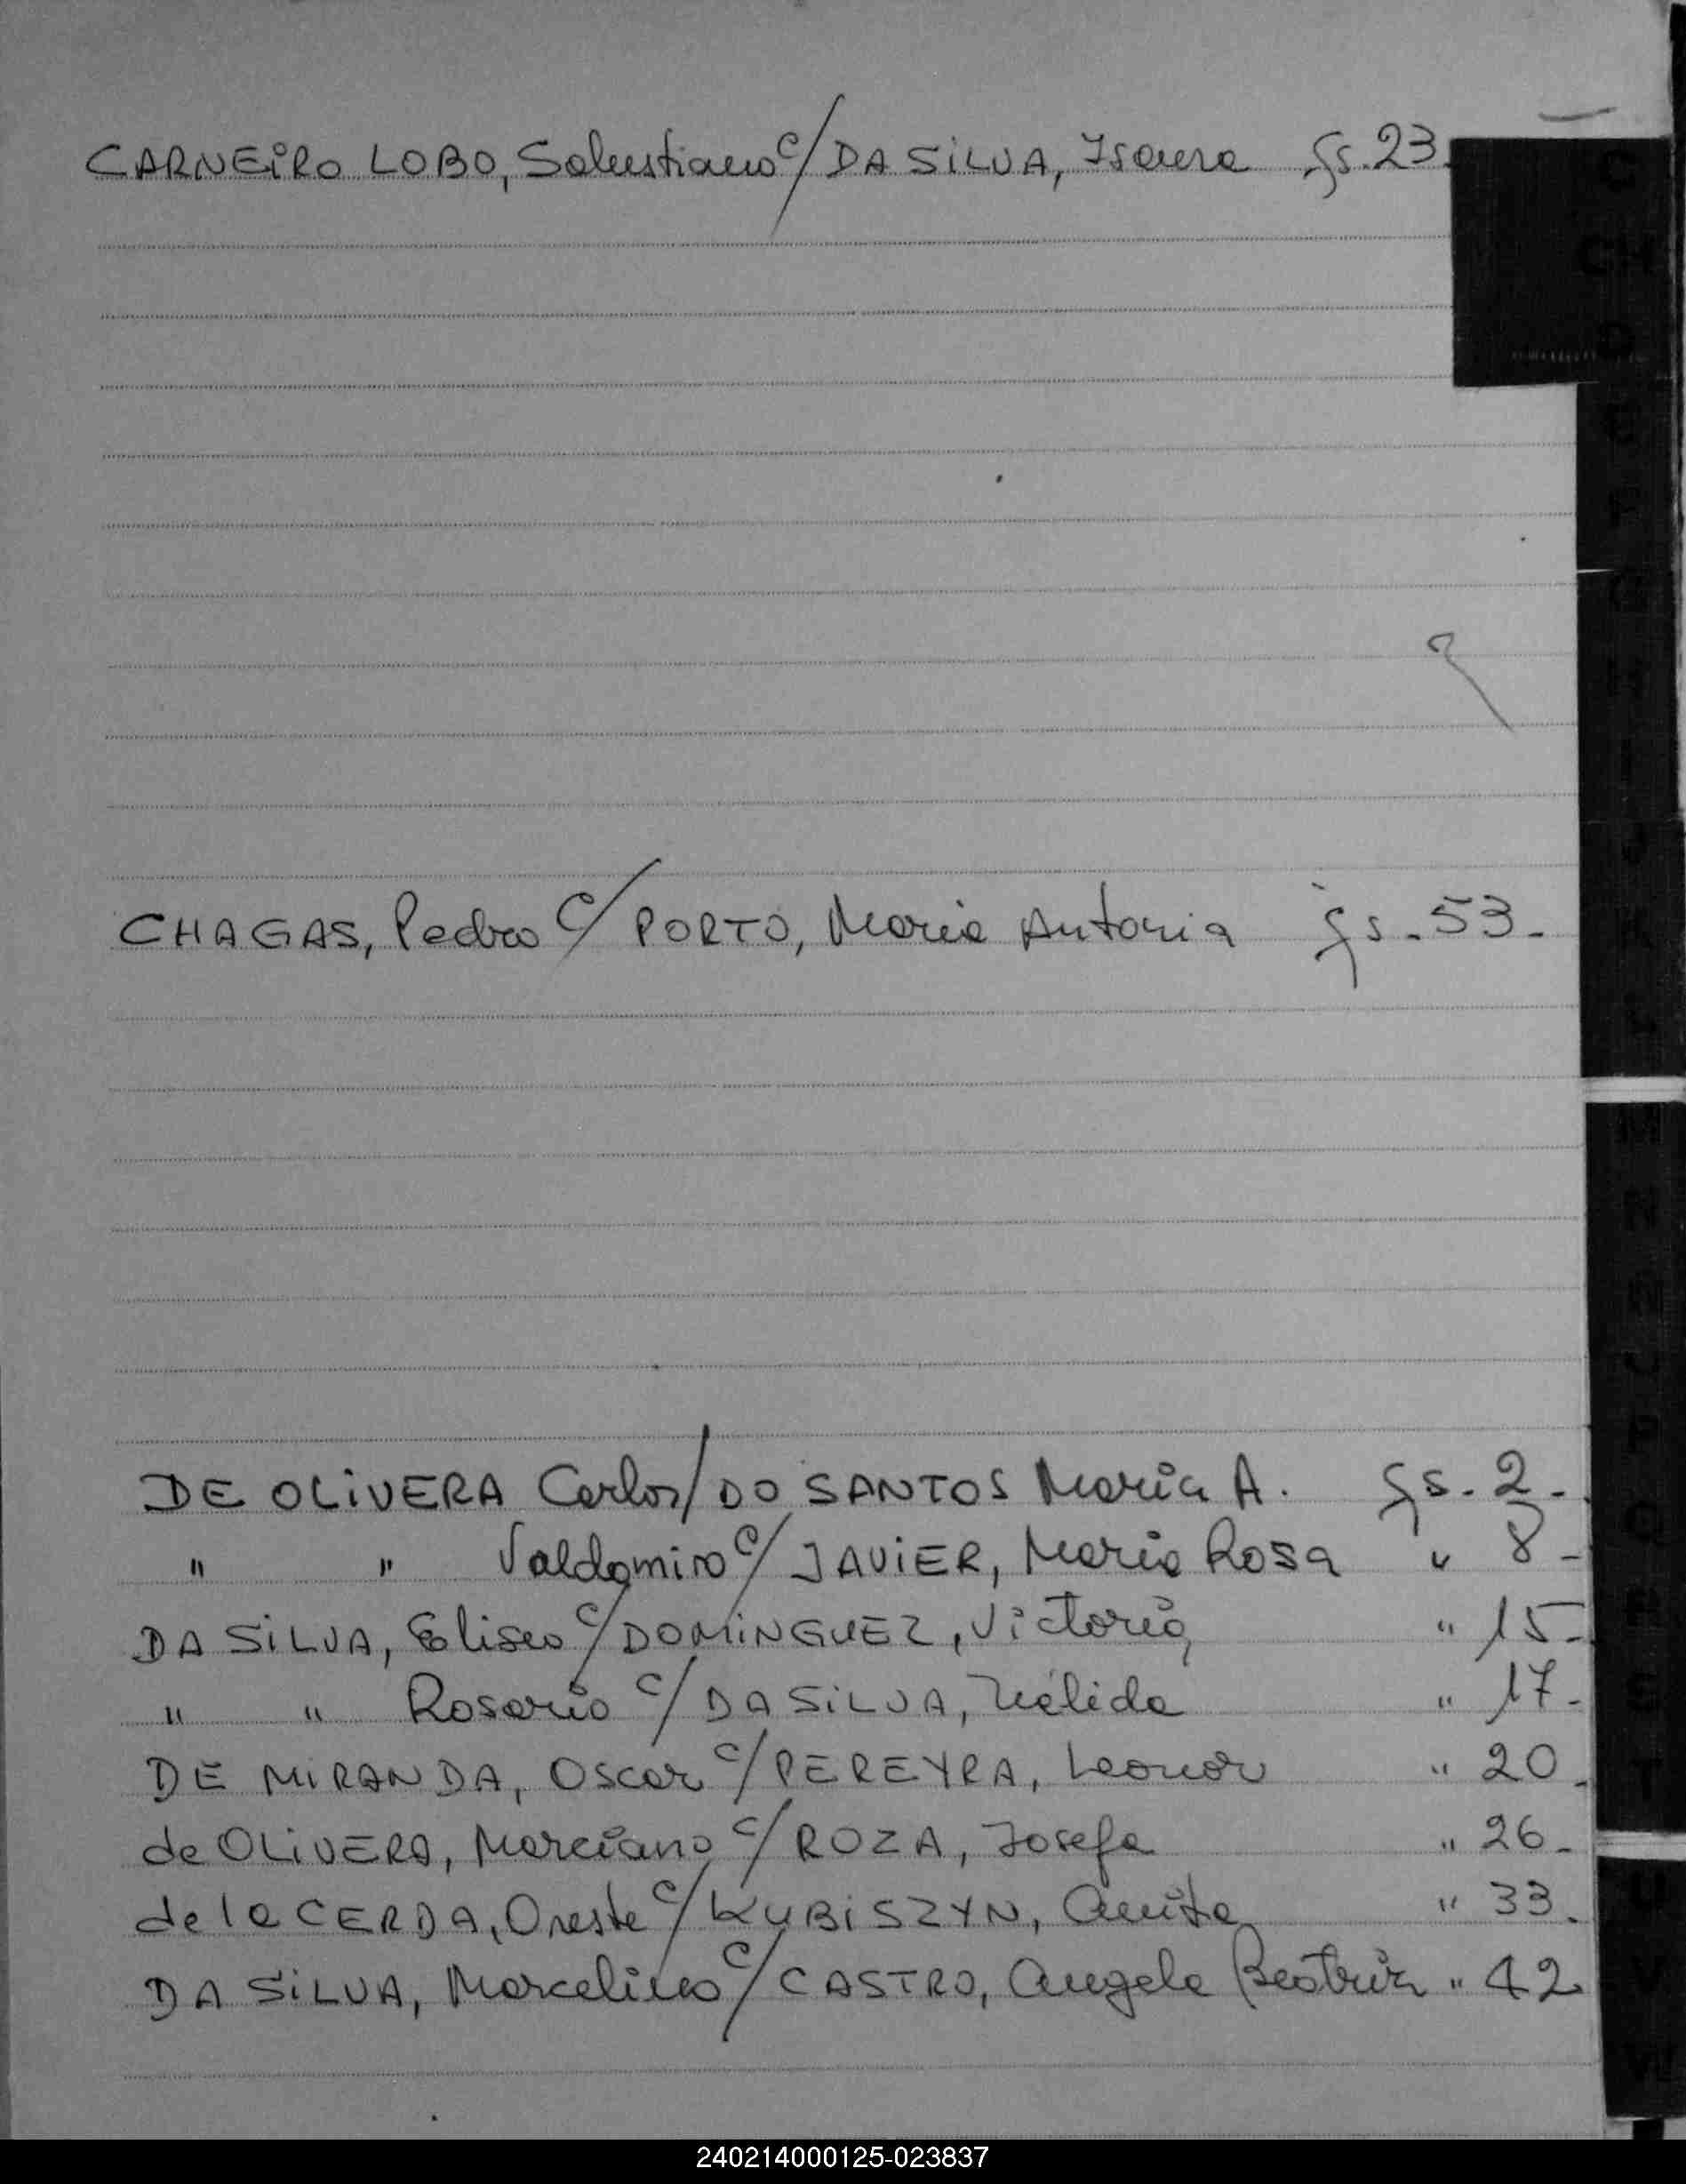 CARNEIRO LOBO, Salustiano c/ DA SILVA, Isaura fs. 23.
CHAGAS, Pedro c/ PORTO, Maria Antonia fs. 53.
DE OLIVERA Carlos / DO SANTOS Maria A. fs. 2.
" " Valdomiro c/ JAVIER, Maria Rosa " 8-
DA SILVA, Eliseo c/ DOMINGUEZ, Victoria " 15-
" " Rosario c/ DA SILVA, Nélida " 17-
DE MIRANDA, Oscar c/ PEREYRA, Leonor " 20.
de OLIVERA, Marciano c/ ROZA, Josefa " 26.
de la CERDA, Oreste c/ KUBISZYN, Anita " 33.
DA SILVA, Marcelino c/ CASTRO, Angela Beatriz " 42
240214000125-023837